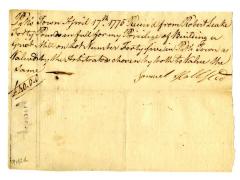 Town April 17th 1775 Receivd from Robert Leake
Forty Pounds in full for my Priviledge of Building a
Grist Mill on Lot Number Forty five in Town as
Valued by the Arbitrators chosen by both to Value the
Same
Samuel
£40.0.0